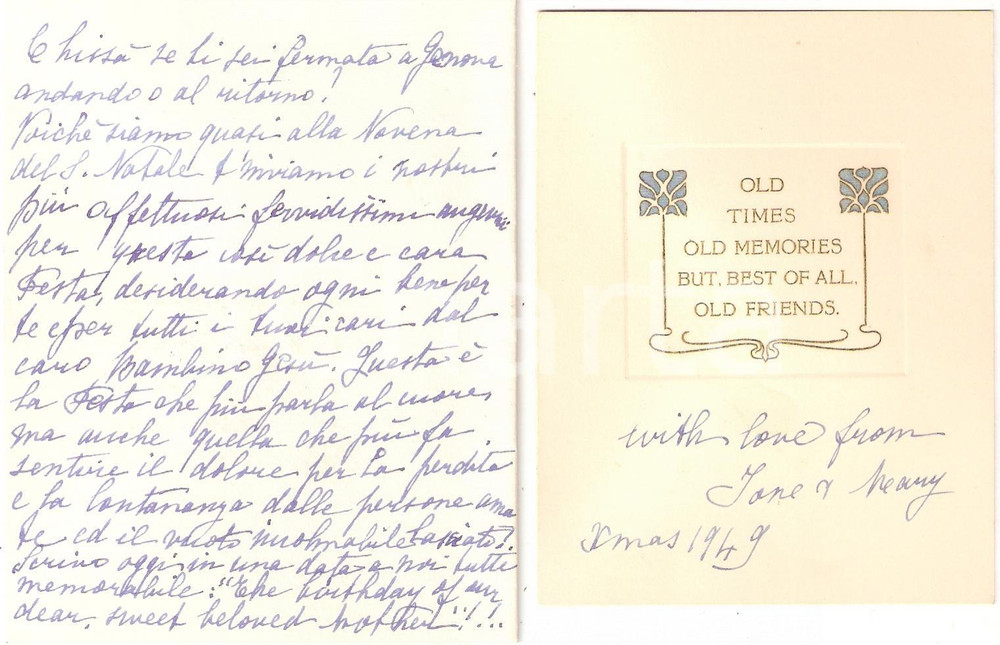 Chissà se ti sei fermata a Genova
andando o al ritorno!
Poichè siamo quasi alla Novena
del S. Natale t'inviamo i nostri
più affettuosi fervidissimi auguri
per questa così dolce e cara
Festa, desiderando ogni bene per
te e per tutti i tuoi cari dal
caro Bambino Gesù. Questa è
la Festa che più parla al cuore,
ma anche quella che più fa
sentire il dolore per la perdita
e la lontananza dalle persone ama
te ed il vuoto incolmabile lasciato!.
Scrivo oggi in una data a noi tutti
memorabile: "The birthday of our
dear, sweet beloved Mother!"!!...
OLD
TIMES
OLD MEMORIES
BUT, BEST OF ALL,
OLD FRIENDS.
with love from
& Mary
Xmas 1949